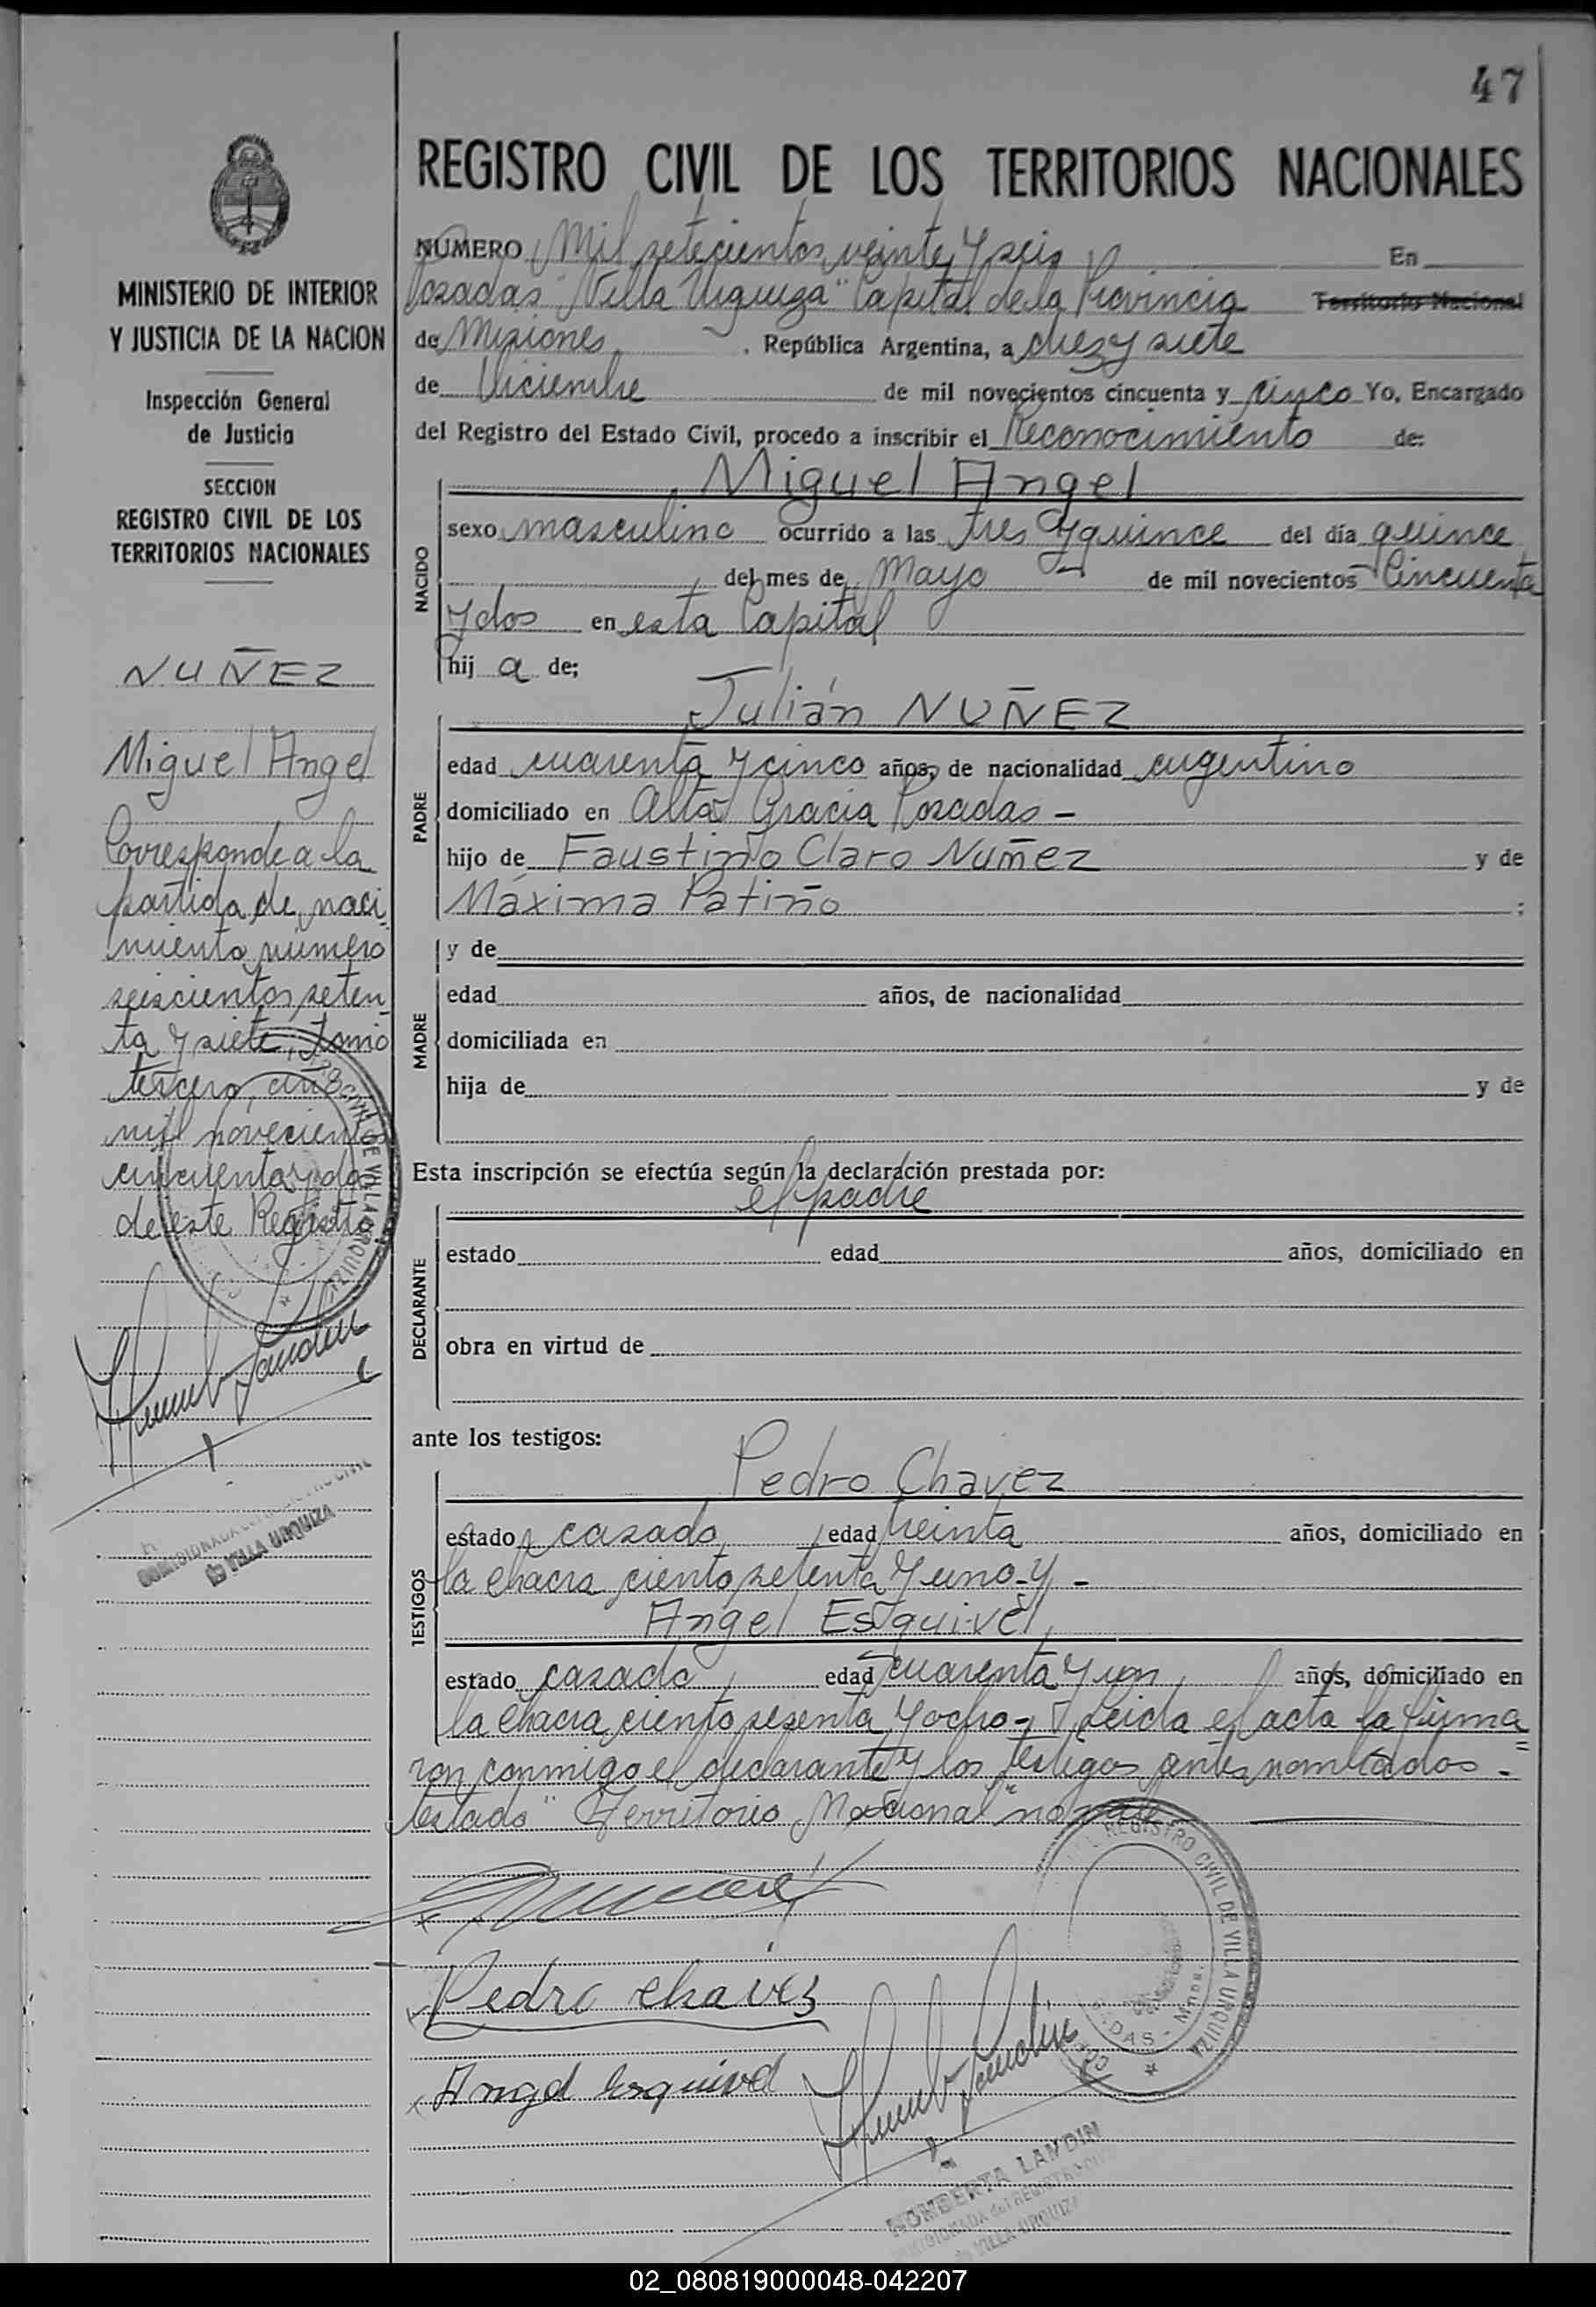 47
REGISTRO CIVIL DE LOS TERRITORIOS NACIONALES
NUMERO Mil setecientos veinte y seis En
Posadas "Villa Urquiza" Capital de la Provincia Territorio Nacional
de Misiones, República Argentina, a diez y siete
de Diciembre de mil novecientos cincuenta y cinco Yo, Encargado
del Registro del Estado Civil, procedo a inscribir el Reconocimiento de:
MINISTERIO DE INTERIOR
Y JUSTICIA DE LA NACION
Inspección General
de Justicia
SECCION
REGISTRO CIVIL DE LOS
TERRITORIOS NACIONALES
NUÑEZ
Miguel Angel
Corresponde a la
partida de naci
miento número
seiscientos seten
ta y siete, tomo
tercero, año
mil novecientos
cincuenta y dos
de este Registro
NACIDO
Miguel Angel
sexo masculino ocurrido a las tres y quince del día quince
del mes de Mayo de mil novecientos Cincuenta
y dos en esta Capital
hij a de;
PADRE
Julián NUÑEZ
edad cuarenta y cinco años, de nacionalidad argentino
domiciliado en Alta Gracia Posadas -
hijo de Faustino Claro Nuñez y de
Máxima Patiño ;
MADRE
y de
edad años, de nacionalidad
domiciliada en
hija de y de
Esta inscripción se efectúa según la declaración prestada por:
DECLARANTE
el padre
estado edad años, domiciliado en
obra en virtud de
ante los testigos:
TESTIGOS
Pedro Chavez
estado casado, edad treinta años, domiciliado en
la chacra ciento setenta y uno - y -
Angel Esquivel,
estado casado, edad cuarenta y un años, domiciliado en
la chacra ciento sesenta y ocho - Leida el acta la firma
ron conmigo el declarante y los testigos antes nombrados -
testado "Territorio Nacional" no vale
Pedro Chavez
Angel Esquivel
REGISTRO CIVIL DE VILLA URQUIZA
HUMBERTA LANDIN
COMISIONADA del REGISTRO CIVIL
de VILLA URQUIZA
02_080819000048-042207